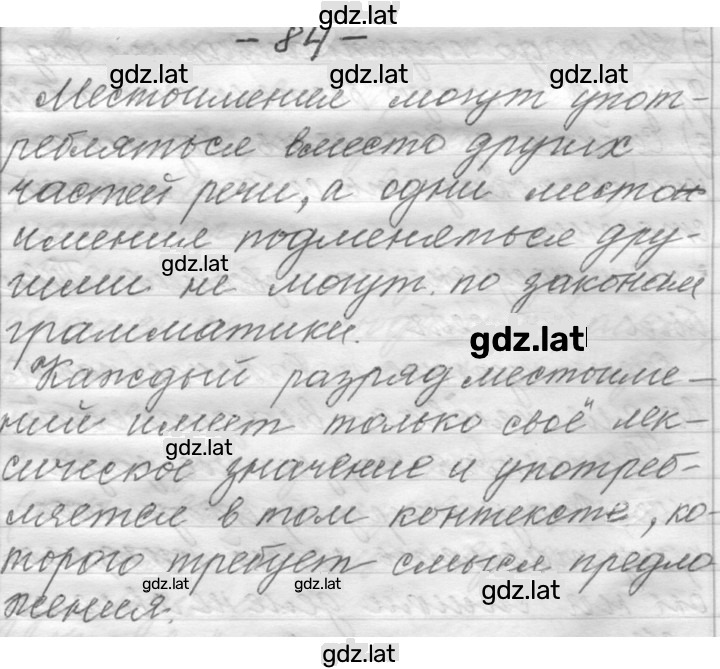 gdz.lat
- 84 -
gdz.lat gdz.lat gdz.lat
Местоимения могут упот-
ребляться вместо других
частей речи, а одни место
имения подменяться дру-
gdz.lat
гими не могут по законам
грамматики.
gdz.lat
Каждый разряд местоиме-
ний имеет только своё лек-
gdz.lat
сическое значение и употреб-
ляется в том контексте, ко-
торого требует смысл предло
gdz.lat gdz.lat gdz.lat
жения.
gdz.lat